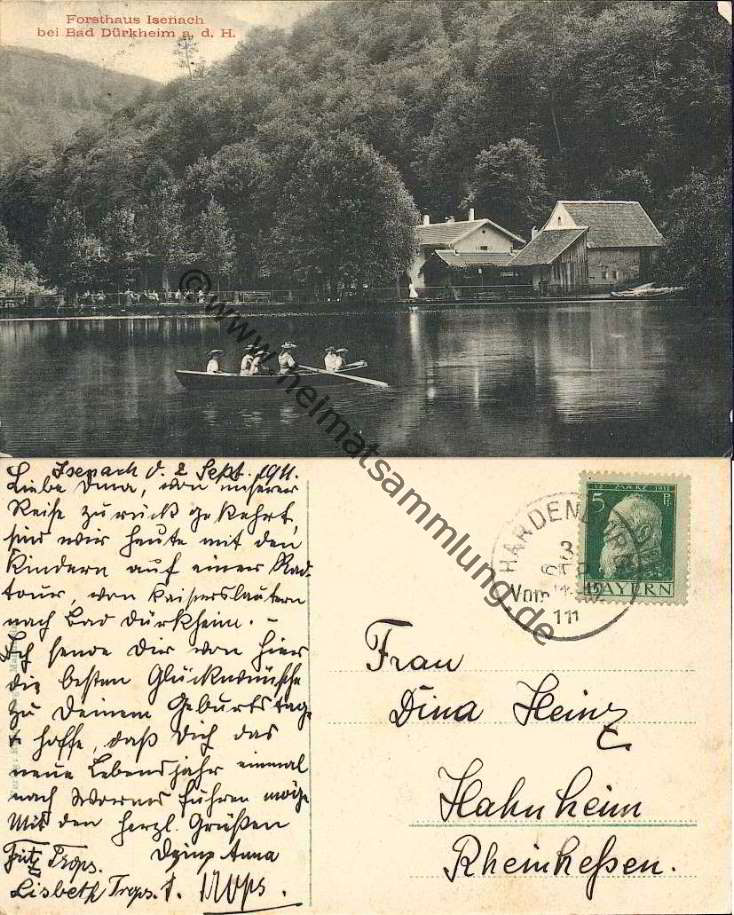 Forsthaus Isenach
bei Bad Dürkheim a. d. H.
© www.heimatsammlung.de
Isenach d. 2 Sept. 1911.
Liebe Dina, von unserer
Reise zurück gekehrt,
sind wir heute mit den
Kindern auf einer Rad-
tour, von Kaiserslautern
nach Bad Dürkheim. –
Ich sende Dir von hier
die besten Glückwünsche
zu Deinem Geburtstage
& hoffe, daß Dich das
neue Lebensjahr einmal
nach Worms führen möge
Mit den herzl. Grüßen
Fritz Trops. Anna
Lisbeth Trops. Trops.
HARDENBURG
3
SEP
Vorm
111
5 Pf
BAYERN
Frau
Dina Heinz
Hahnheim
Rheinheßen.